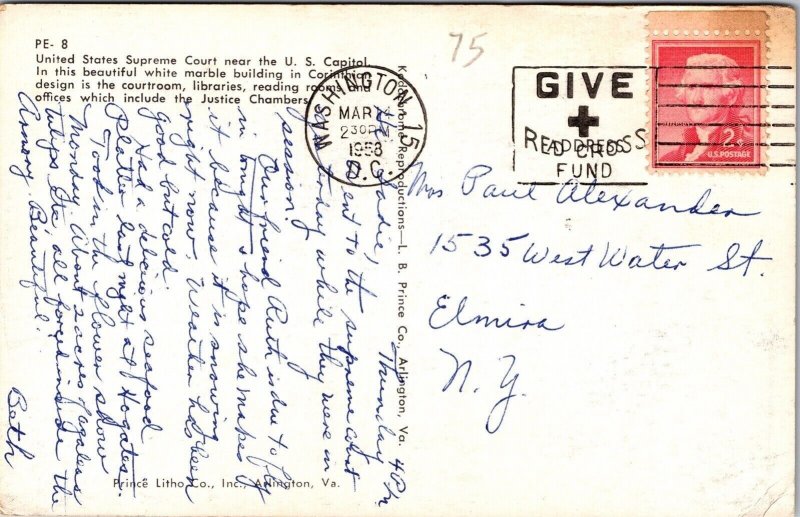 PE- 8
United States Supreme Court near the U. S. Capitol.
In this beautiful white marble building in Corinthian
design is the courtroom, libraries, reading rooms and
offices which include the Justice Chambers.
75
WASHINGTON 15
MAR
2 30 PM
1958
D.C.
GIVE
RED CROSS
ADDRESS
FUND
2¢
U.S. POSTAGE
Mrs Paul Alexander
1535 West Water St.
Elmira
N. Y.
Kodachrome Reproductions—L. B. Prince Co., Arlington, Va.
Thursday 4 P.M.
went to the supreme court
today while they were in
session.
Our friend Ruth is due to fly
in tonight & hope she makes
it because it is snowing
right now. Weather has been
good but cold.
Had a delicious seafood
Platter last night at Hogates.
Took in the flower show
Monday. About 2 acres
tulips Etc, all inside the
Armory. Beautiful.
Beth
Prince Litho Co., Inc., Arlington, Va.